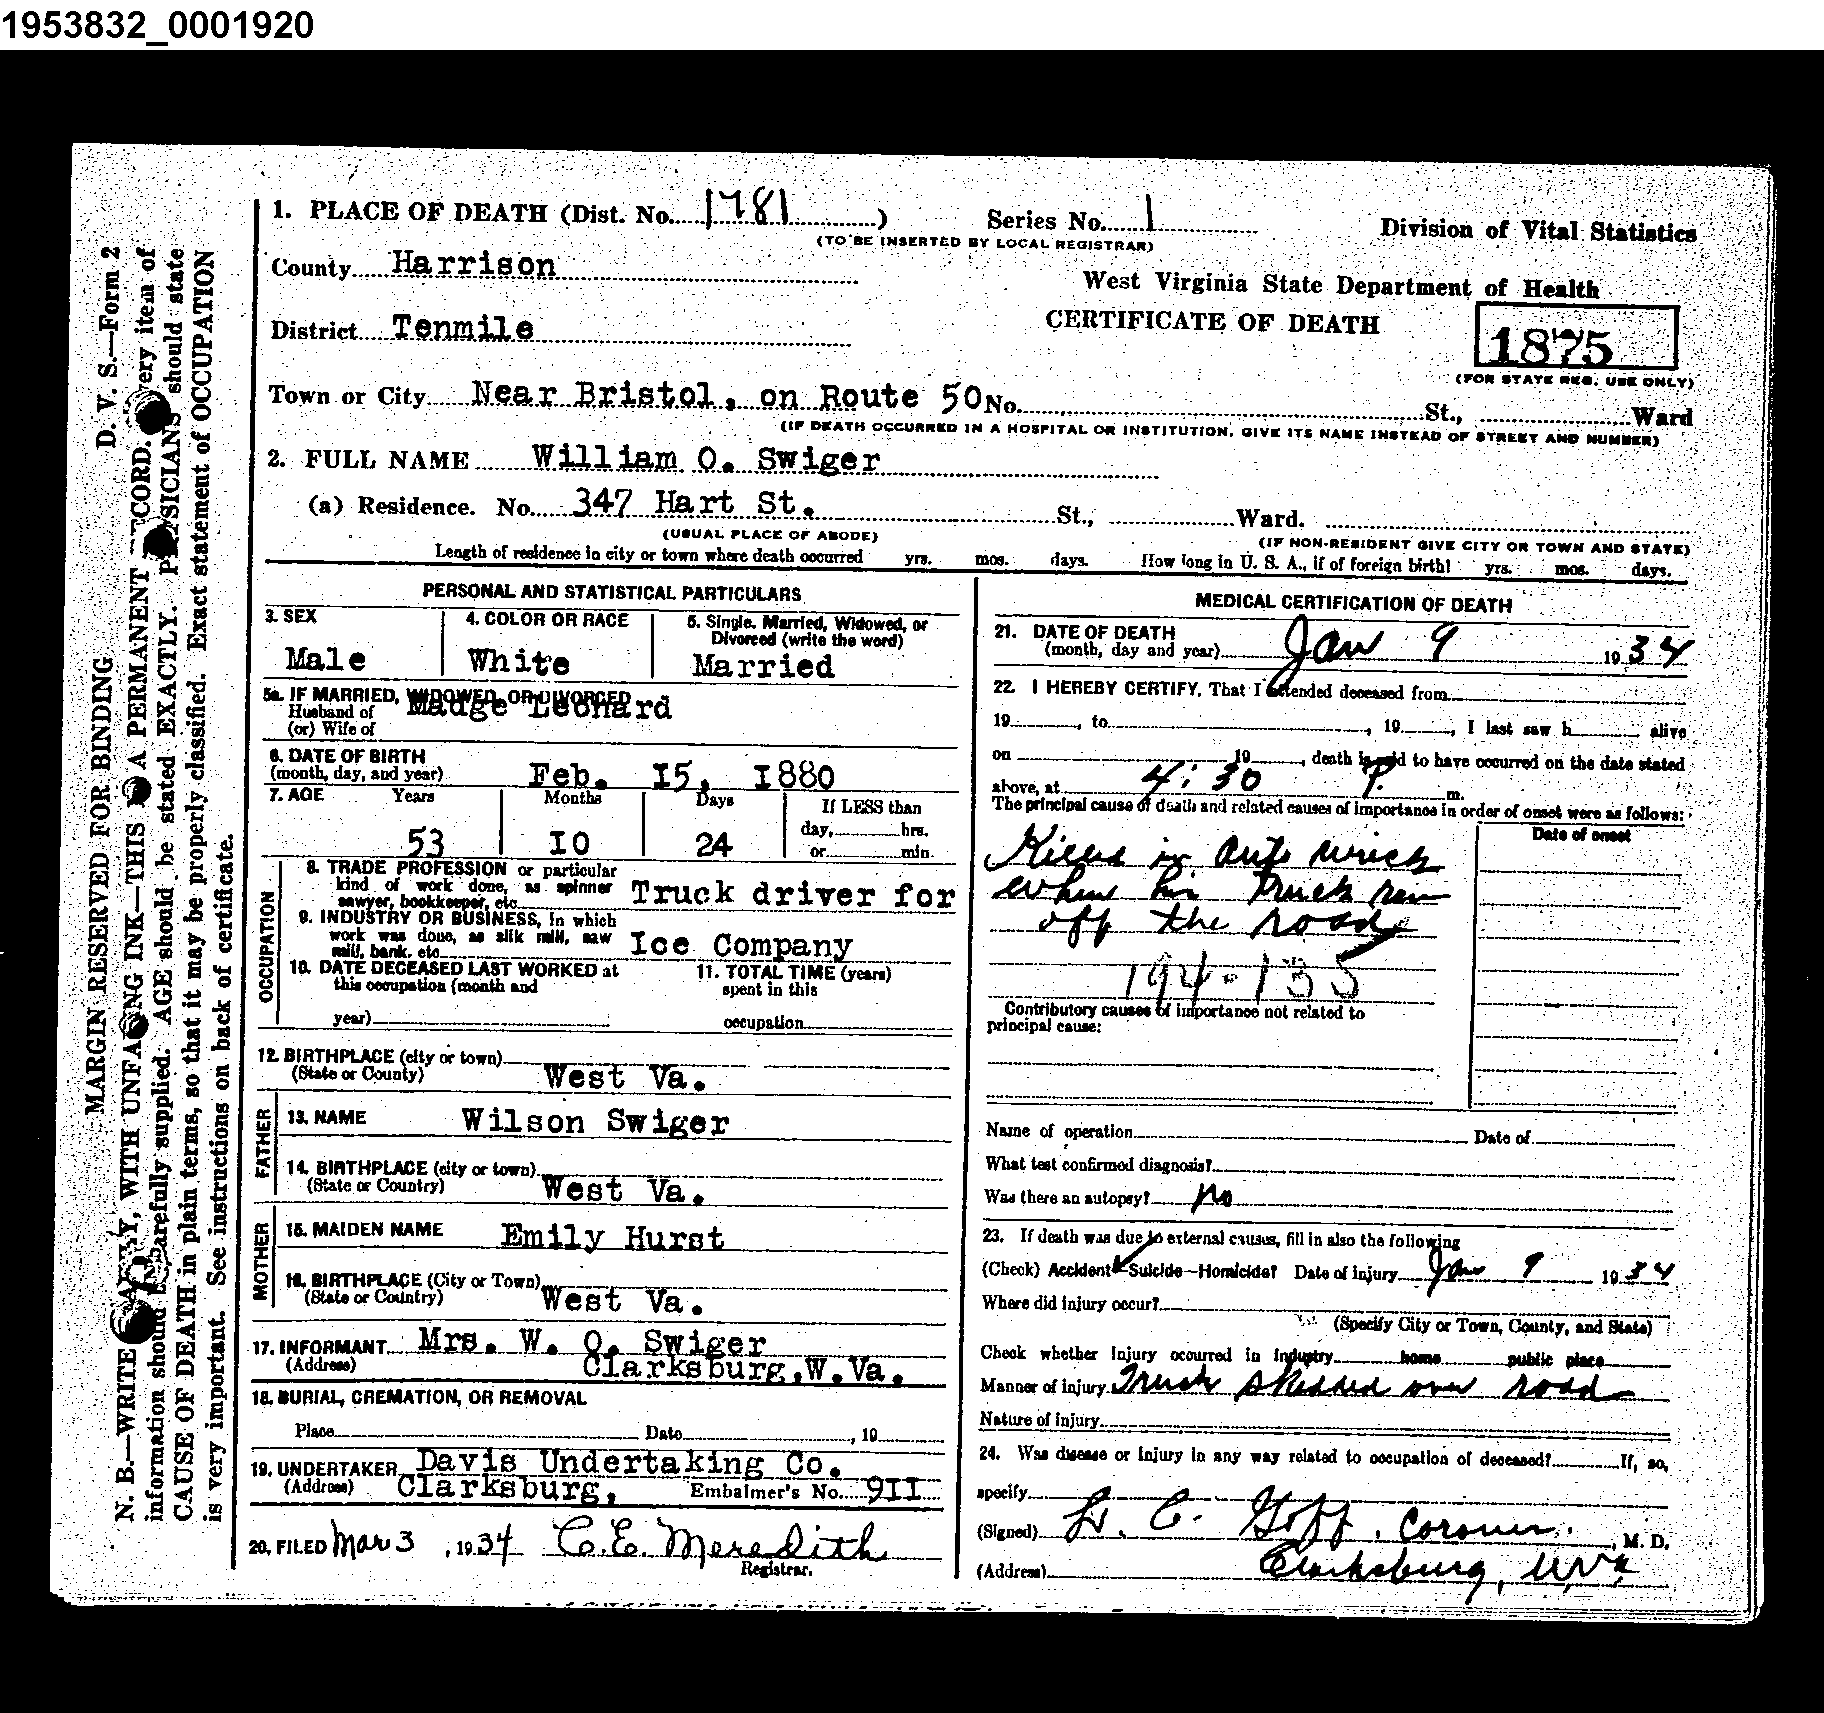 1953832_0001920
1. PLACE OF DEATH (Dist. No. 1781) Series No. 1
(TO BE INSERTED BY LOCAL REGISTRAR)
Division of Vital Statistics
County Harrison
West Virginia State Department of Health
District Tenmile
CERTIFICATE OF DEATH
1875
(FOR STATE REG. USE ONLY)
Town or City Near Bristol, on Route 50 No. St., Ward
(IF DEATH OCCURRED IN A HOSPITAL OR INSTITUTION, GIVE ITS NAME INSTEAD OF STREET AND NUMBER)
2. FULL NAME William O. Swiger
(a) Residence. No. 347 Hart St. St., Ward.
(USUAL PLACE OF ABODE) (IF NON-RESIDENT GIVE CITY OR TOWN AND STATE)
Length of residence in city or town where death occurred yrs. mos. days. How long in U. S. A., if of foreign birth? yrs. mos. days.
PERSONAL AND STATISTICAL PARTICULARS
3. SEX
Male
4. COLOR OR RACE
White
5. Single, Married, Widowed, or
Divorced (write the word)
Married
5a. IF MARRIED, WIDOWED, OR DIVORCED
Husband of
(or) Wife of
Madge Leonard
6. DATE OF BIRTH
(month, day, and year) Feb. I5, I880
7. AGE Years Months Days If LESS than
day, hrs.
or min.
53 IO 24
OCCUPATION
8. TRADE PROFESSION or particular
kind of work done, as spinner
sawyer, bookkeeper, etc. Truck driver for
9. INDUSTRY OR BUSINESS, in which
work was done, as silk mill, saw
mill, bank, etc. Ice Company
10. DATE DECEASED LAST WORKED at
this occupation (month and
year)
11. TOTAL TIME (years)
spent in this
occupation
12. BIRTHPLACE (city or town)
(State or County) West Va.
FATHER
13. NAME Wilson Swiger
14. BIRTHPLACE (city or town)
(State or Country) West Va.
MOTHER
15. MAIDEN NAME Emily Hurst
16. BIRTHPLACE (City or Town)
(State or Country) West Va.
17. INFORMANT Mrs. W. O. Swiger
(Address) Clarksburg,W.Va.
18. BURIAL, CREMATION, OR REMOVAL
Place Date , 19
19. UNDERTAKER Davis Undertaking Co.
(Address) Clarksburg, Embalmer's No. 9II
20. FILED Mar 3, 1934 C. E. Meredith
Registrar.
MEDICAL CERTIFICATION OF DEATH
21. DATE OF DEATH
(month, day and year) Jan 9 1934
22. I HEREBY CERTIFY, That I attended deceased from
19 , to , 19 , I last saw h alive
on 19 , death is said to have occurred on the date stated
above, at 4:30 P. m.
The principal cause of death and related causes of importance in order of onset were as follows:
Date of onset
Killed in auto wreck
when his Truck ran
off the road
194-135
Contributory causes of importance not related to
principal cause:
Name of operation Date of
What test confirmed diagnosis?
Was there an autopsy? no
23. If death was due to external causes, fill in also the following
(Check) Accident—Suicide—Homicide? Date of injury Jan 9 1934
Where did injury occur?
(Specify City or Town, County, and State)
Check whether injury occurred in industry home public place
Manner of injury Truck skidded over road
Nature of injury
24. Was disease or injury in any way related to occupation of deceased? If, so,
specify
(Signed) L. C. Goff, Coroner. , M. D.
(Address) Clarksburg, W.Va
D. V. S.—Form 2
MARGIN RESERVED FOR BINDING
N. B.—WRITE WITH UNFADING INK—THIS A PERMANENT RECORD. Every item of
information should be carefully supplied. AGE should be stated EXACTLY. PHYSICIANS should state
CAUSE OF DEATH in plain terms, so that it may be properly classified. Exact statement of OCCUPATION
is very important. See instructions on back of certificate.